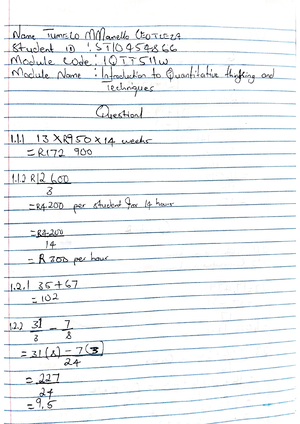 Name Tumisco M Mamello
Student ID : ST10454866
Module Code : IQTT511W
Module Name : Introduction to Quantitative thinking and
techniques
Question1
1.1.1 13 X R950 X 14 weeks
= R172 900
1.1.2 R12 600
3
= R4200 per student for 14 hour
= R4200
14
= R 300 per hour
1.2.1 35 + 67
= 102
12.2 31 - 7
3 8
= 31(8) - 7(3)
24
= 227
24
= 9,5